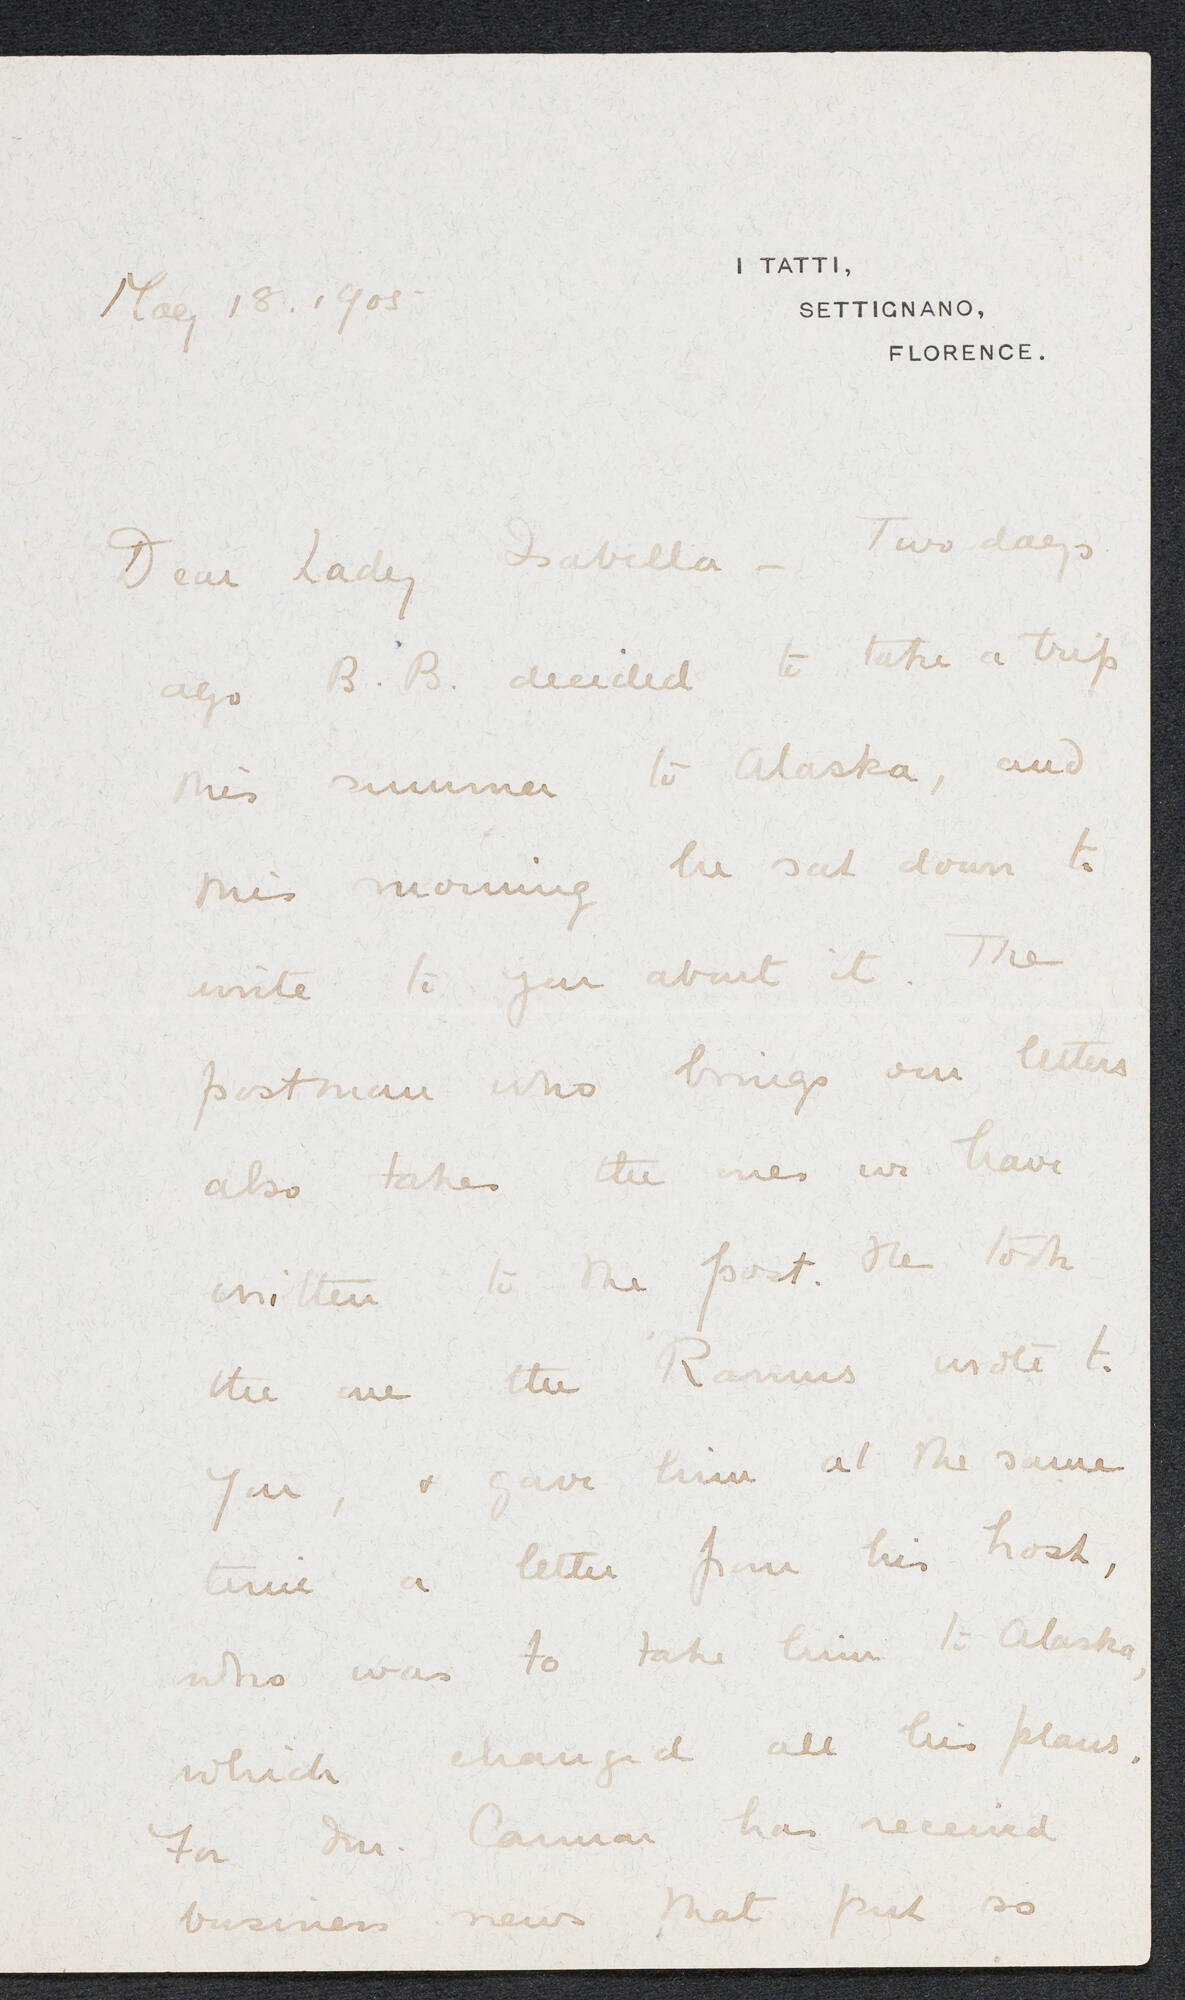 I TATTI,
SETTIGNANO,
FLORENCE.
May 18. 1905
Dear Lady Isabella - Two days
ago B. B. decided to take a trip
this summer to Alaska, and
this morning he sat down to
write to you about it. The
postman who brings our letters
also takes the ones we have
written to the post. He took
the one the Ramus wrote to
you, & gave him at the same
time a letter from his host,
who was to take him to Alaska,
which changed all his plans.
For Mr. Cannon has received
business news that put so